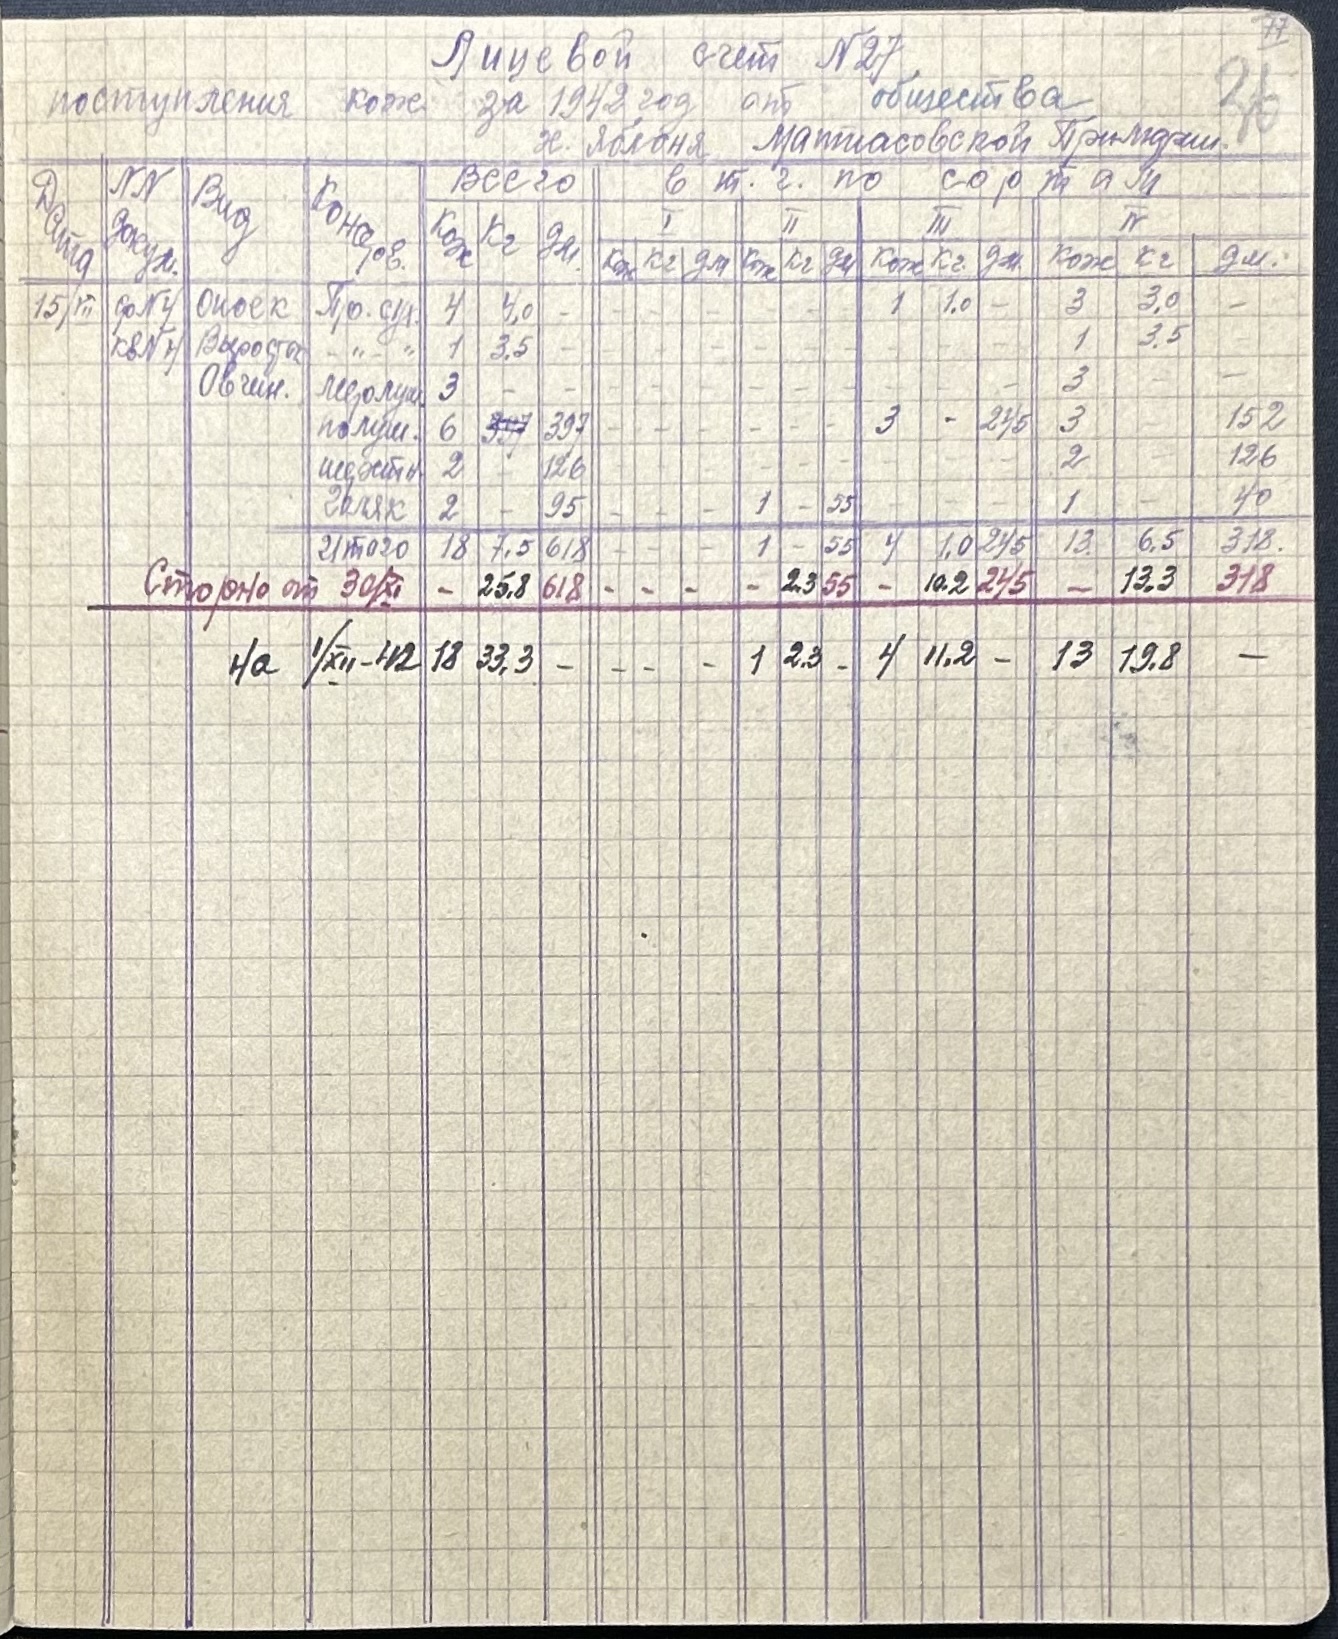 17
26
Лицевой счет N27
поступления кож за 1942 год от общества
х. Яблоня Маттасовской Примэрии.
Дата NN докум. Вид Консеров. Всего в т. г. по сортам
I II III IV
Кож Кг дм. Кож Кг дм Кож Кг дм Кож Кг дм. Кож Кг дм.
15/XII фN4 Опоек Пр. сух. 4 4,0 - - - - - - - 1 1.0 - 3 3,0 -
квN4 Выросток - " - " 1 3.5 - - - - - - - - - - 1 3.5 -
Овчин. 3 - - - - - - - - - - - 3 - -
полуш. 6 397 397 - - - - - - 3 - 245 3 152
шерстн. 2 - 126 - - - - - - - - - 2 126
Голяк 2 - 95 - - - 1 - 55 - - - 1 - 40
Итого 18 7,5 618 - - - 1 - 55 4 1,0 245 13 6,5 318.
Сторно от 30/XI - 25,8 618 - - - - 2.3 55 - 10.2 245 - 13.3 318
На 1/XII-42 18 33,3 - - - - 1 2.3 - 4 11.2 - 13 19.8 -